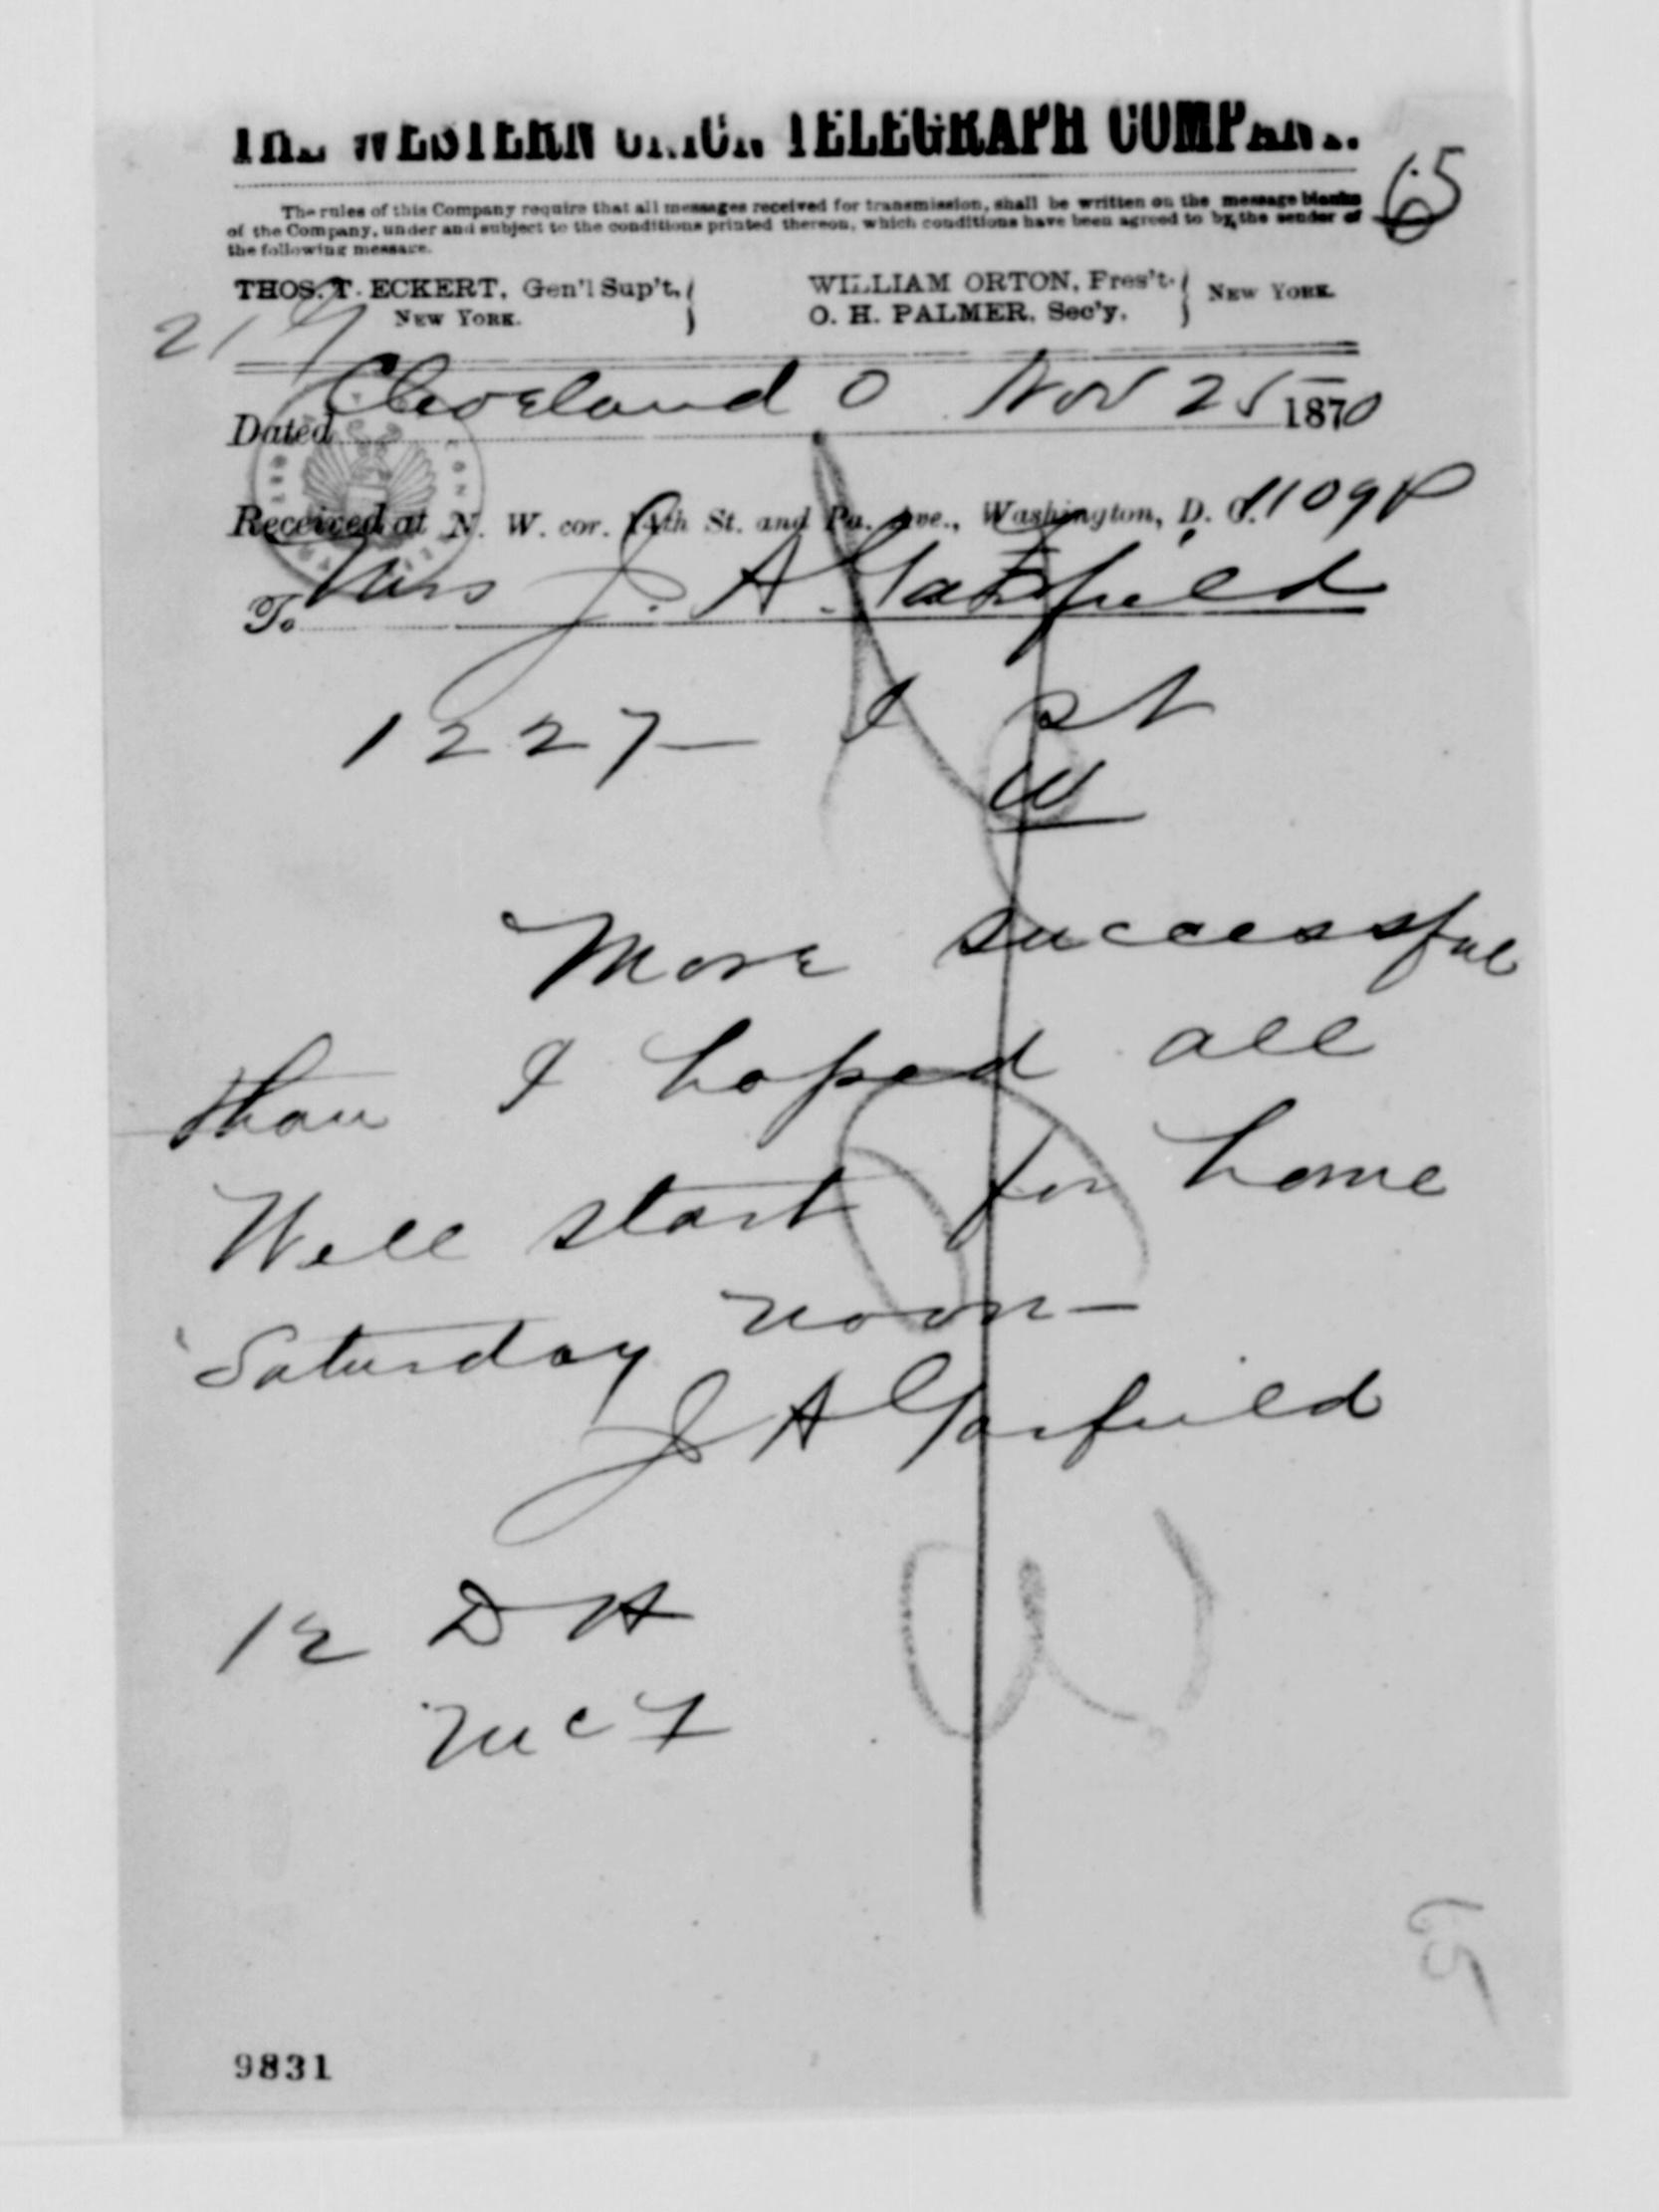 THE WESTERN UNION TELEGRAPH COMPANY.
65
The rules of this Company require that all messages received for transmission, shall be written on the message blanks
of the Company, under and subject to the conditions printed thereon, which conditions have been agreed to by the sender of
the following message.
THOS. T. ECKERT, Gen'l Sup't, NEW YORK.
WILLIAM ORTON, Pres't. O. H. PALMER, Sec'y, NEW YORK.
21
Dated Cleveland O Nov 25 1870
Received at N. W. cor. 14th St. and Pa. Ave., Washington, D. C. 1109P
To Mrs J. A. Garfield
1227 — I st
W
More successful
than I hoped all
Well start for home
Saturday noon —
J A Garfield
12 DH
65
9831